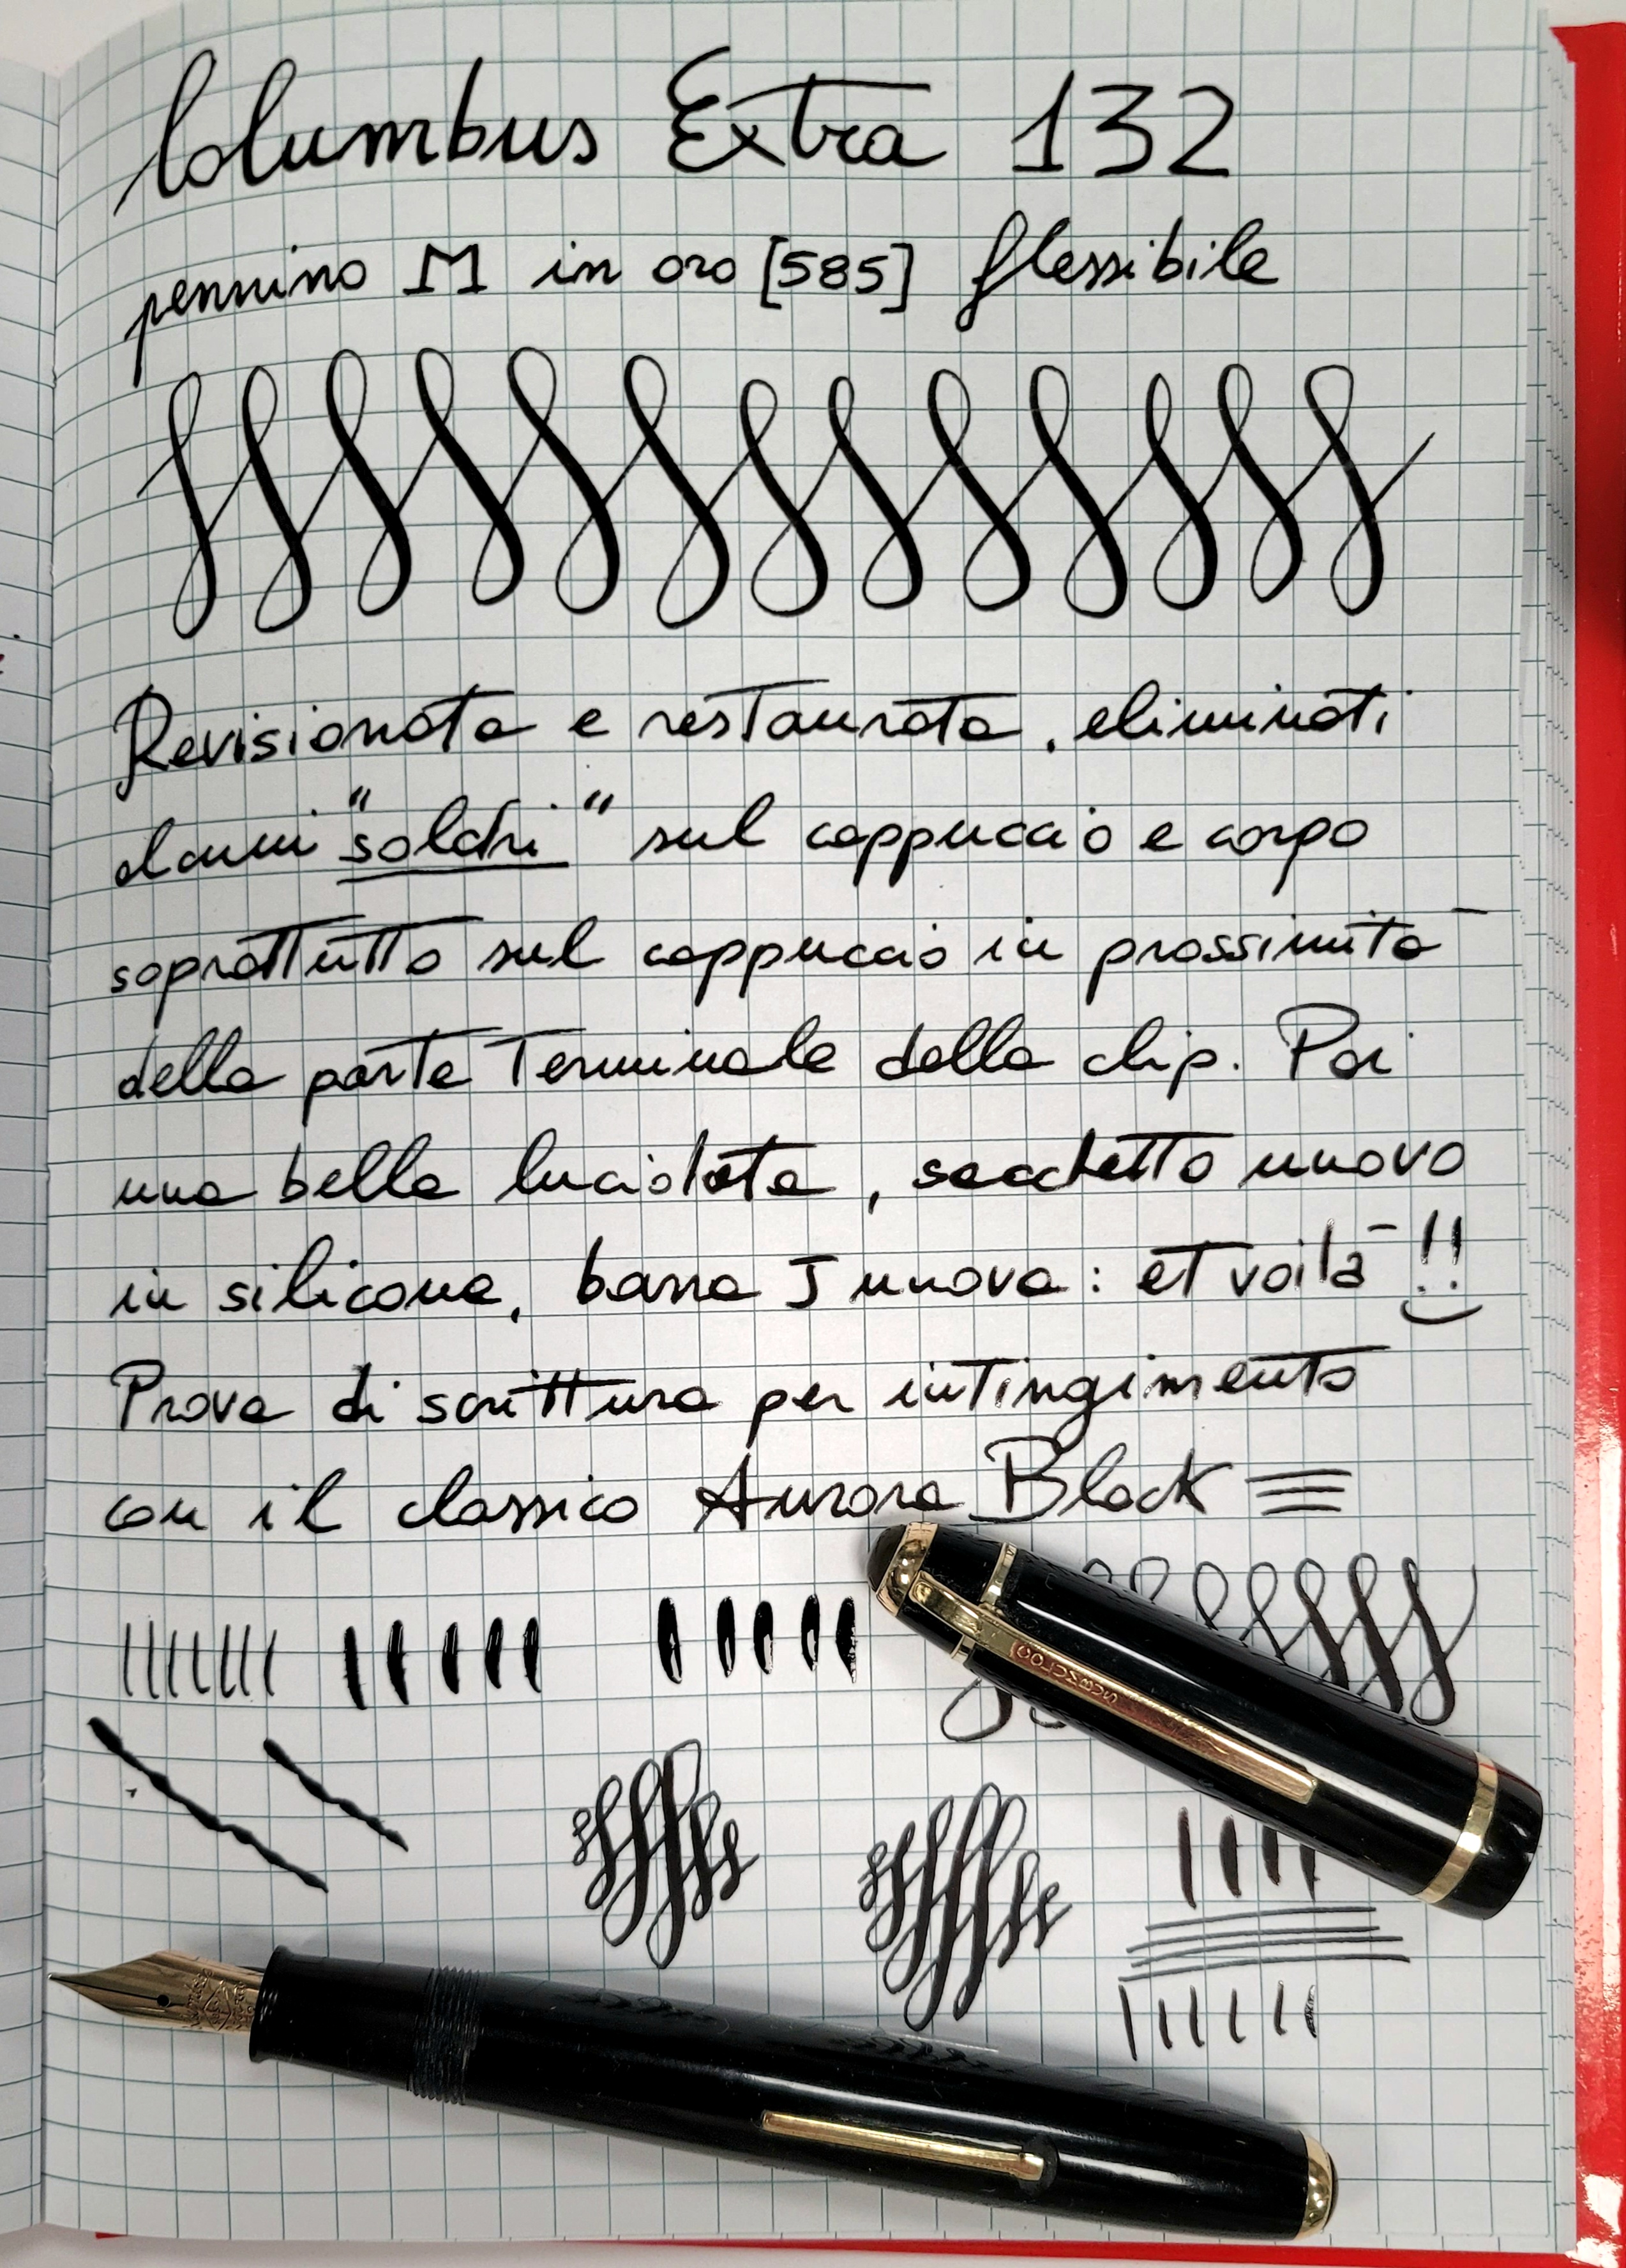 Columbus Extra 132
pennino M in oro [585] flessibile
Revisionata e restaurata, eliminati
danni "soldi" sul cappuccio e corpo
soprattutto sul cappuccio in prossimità
della parte terminale della clip. Poi
una bella lucidata, sacchetto nuovo
in silicone, barra J nuova: et voilà !!
Prova di scrittura per intingimento
con il classico Aurora Black
COLUMBUS